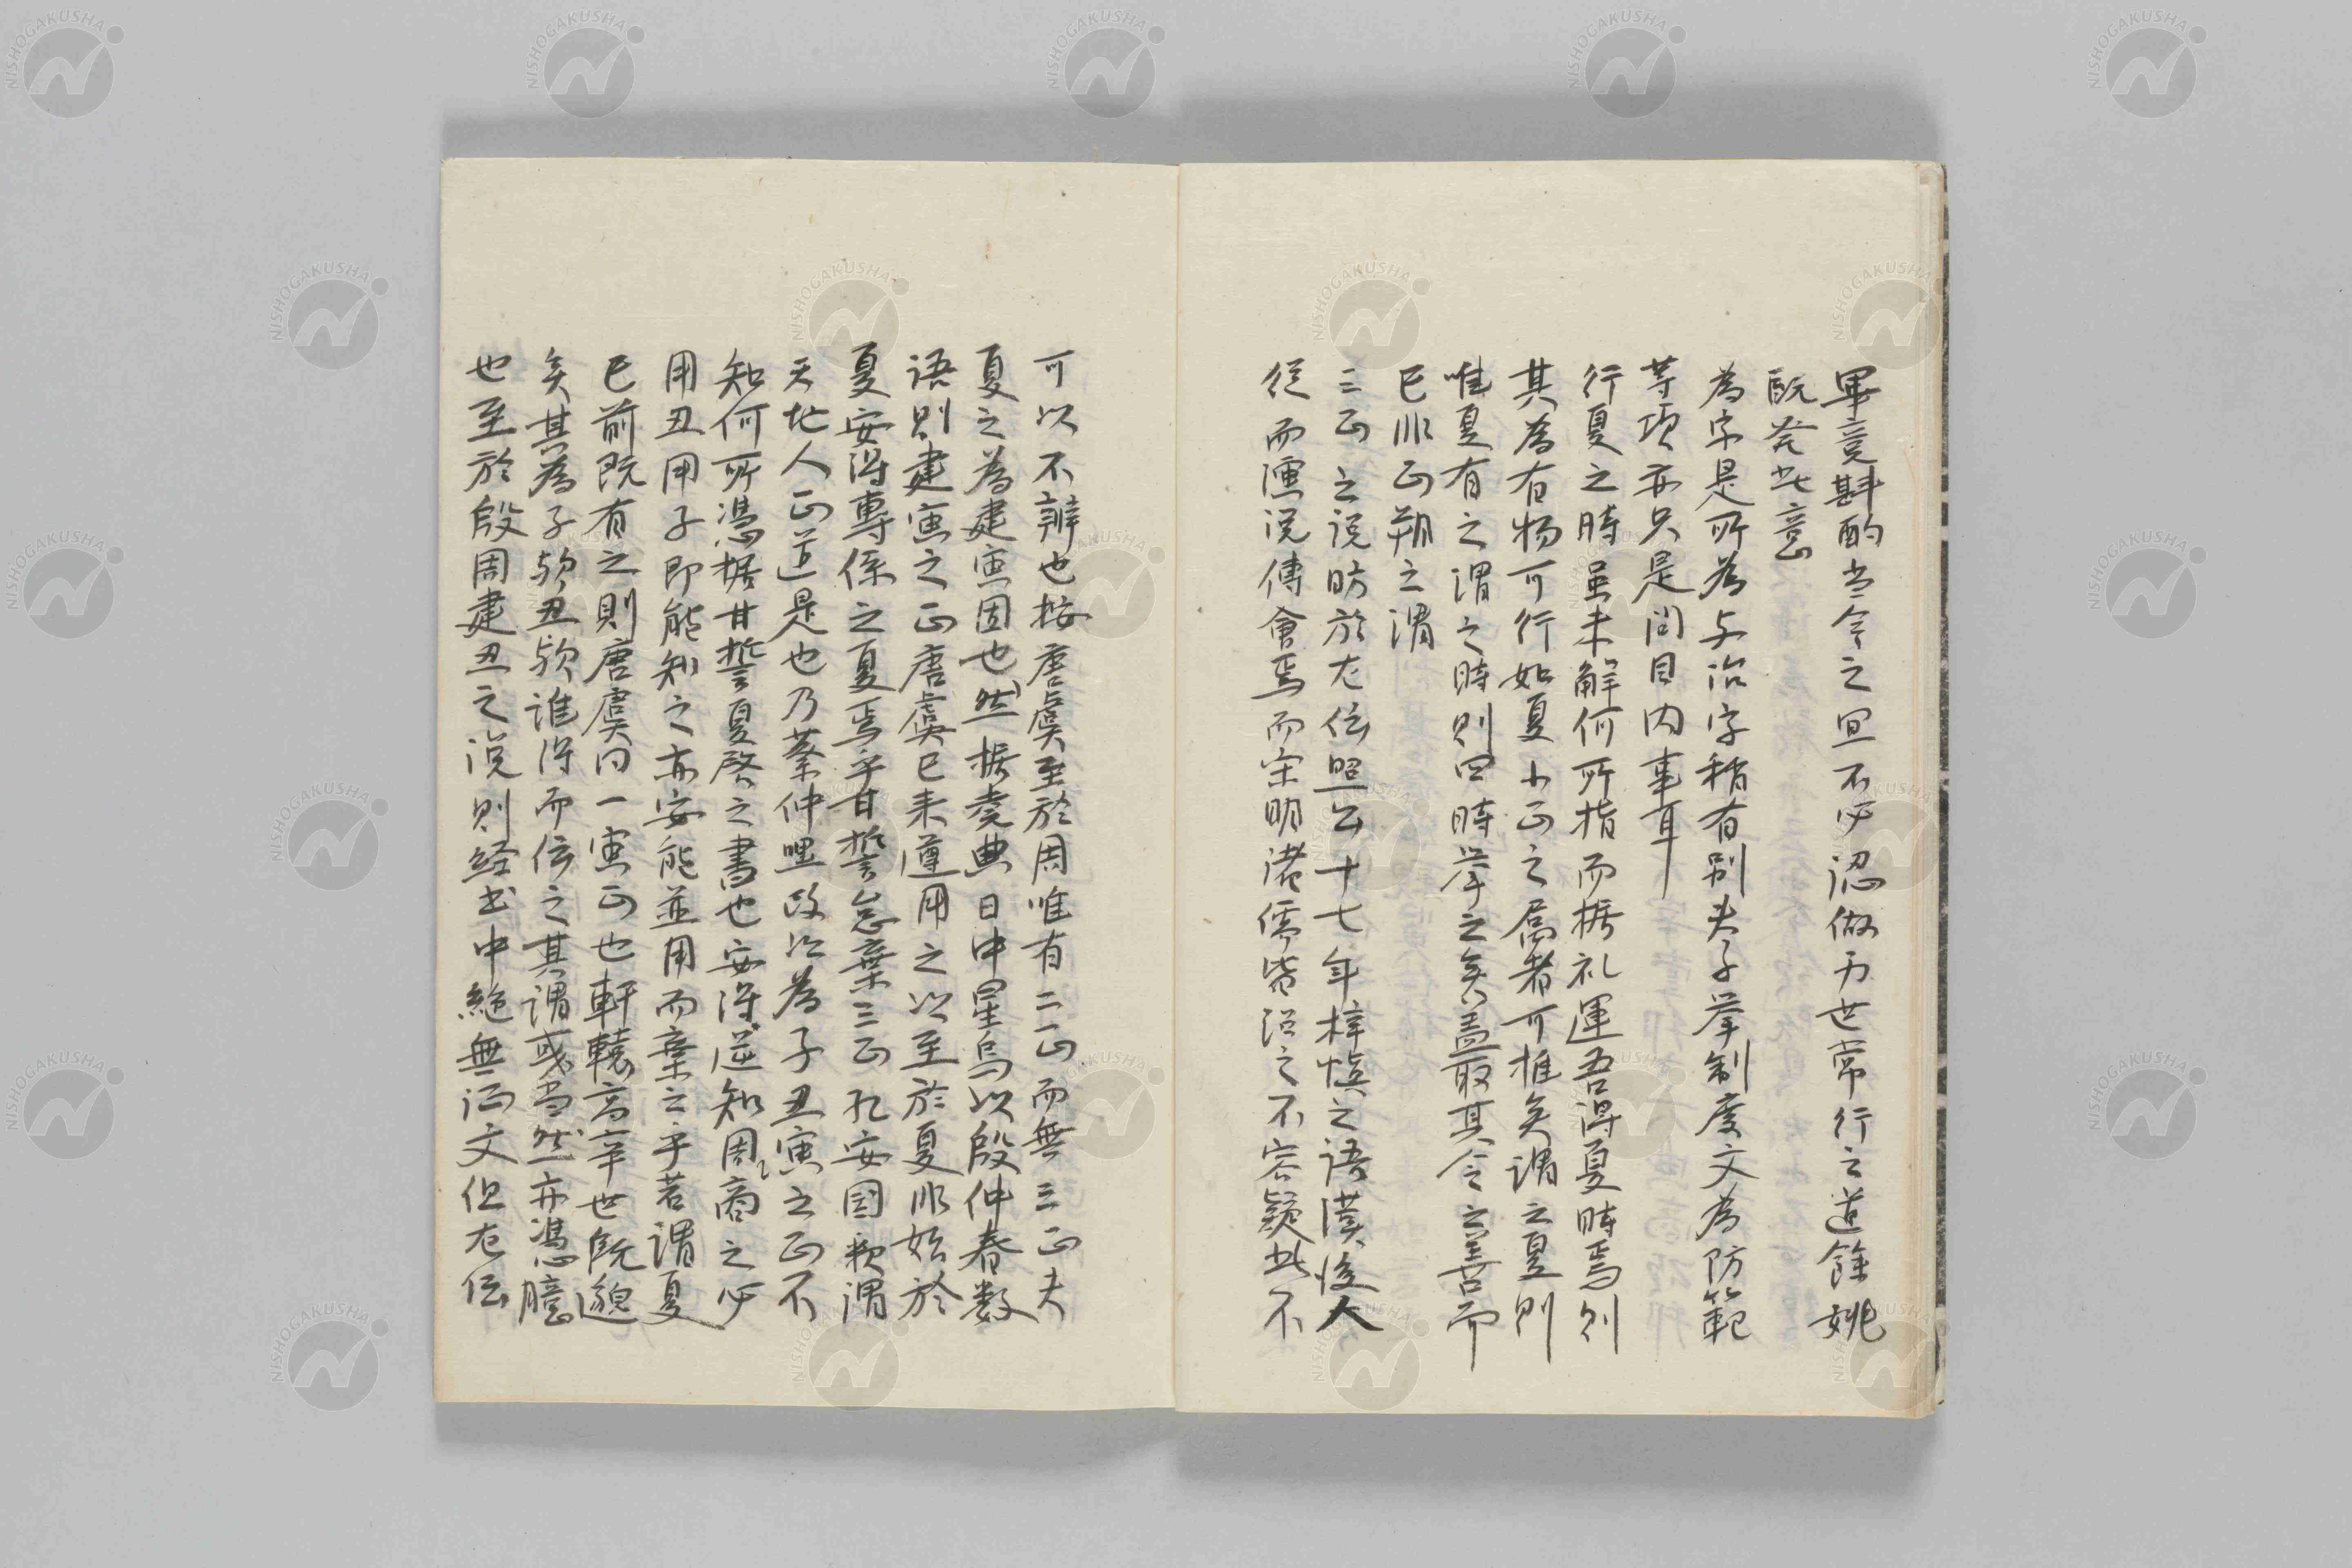 畢竟斟酌当今之宜不必認做万世常行之道餘姚
既発此意
為字是所為与治字稍有別夫子挙制度文為防範
等項亦只是問目内事耳
行夏之時虽未解何所指而据礼運吾得夏時焉則
其為有物可行如夏小正之属者可推矣謂之夏則
唯夏有之謂之時則四時挙之矣盖取其令之善而
已非正朔之謂
三正之説昉於左伝昭公十七年梓慎之語漢後人
従而傅会焉而宋明諸儒皆沿之不容疑此不
可以不辨也按唐虞至於周唯有二正而無三正夫
夏之為建寅固也然据堯典日中星鳥以殷仲春数
語則建寅之正唐虞已来遵用之以至於夏非始於
夏安得專係之夏焉乎甘誓怠棄三正孔安国釈謂
天地人正道是也乃蔡仲黙改以為子丑寅之正不
知何所憑据甘誓夏啓之書也安得逆知周商之必
用丑用子即能知之亦安能並用而棄之乎若謂夏
已前既有之則唐虞同一寅正也軒轅高辛世既邈
矣其為子歟丑歟誰得而伝之其謂或当然亦憑臆
也至於殷周建丑之説則経書中絶無証文但左伝